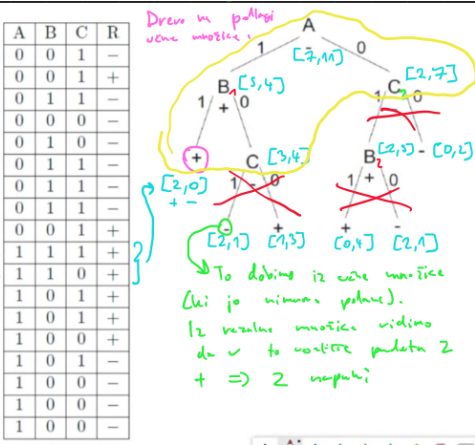 A B C R
0 0 1 −
0 0 1 +
0 1 1 −
0 0 0 −
0 1 0 −
0 1 1 −
0 1 1 −
0 0 1 +
1 1 1 +
1 1 0 +
1 0 1 +
1 0 1 +
1 0 0 +
1 0 1 −
1 0 0 −
1 0 0 −
1 0 0 −
Drevo na podlagi
učne množice.
A
1 - 0
[7,11]
B1 [5,4]
C2 [2,7]
1 + 0
1 0
+
C [3,4]
B2 [2,5]
- [0,2]
[2,0]
+ -
1 - 0
1 + 0
- + + -
[2,1] [1,3] [0,4] [2,1]
To dobimo iz učne množice
(ki jo nimamo podane).
Iz rezalne množice vidimo
da v to vozlišče padeta 2
+ => 2 napaki